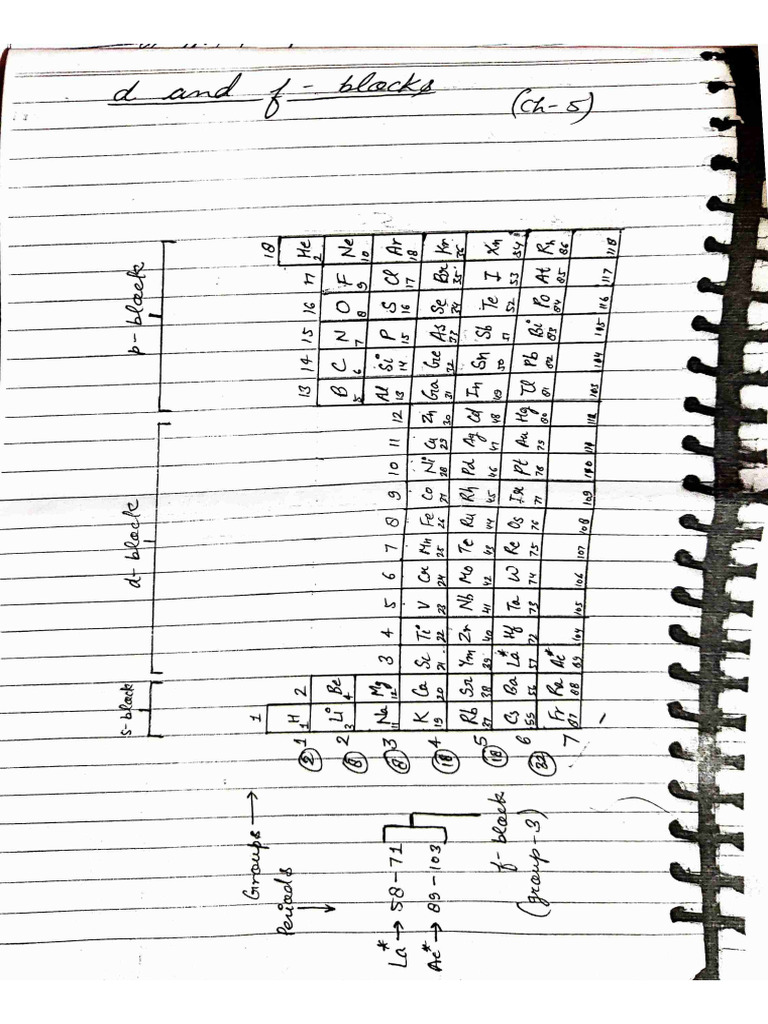 d and f-blocks
(Ch-5)
s-block d-block p-block
Groups →
Periods ↓
1 18
1 H He
② 1 2
2 13 14 15 16 17
2 Li Be B C N O F Ne
⑧ 3 4 5 6 7 8 9 10
3 Na Mg 3 4 5 6 7 8 9 10 11 12 Al Si P S Cl Ar
⑧ 11 12 13 14 15 16 17 18
4 K Ca Sc Ti V Cr Mn Fe Co Ni Cu Zn Ga Ge As Se Br Kr
⑱ 19 20 21 22 23 24 25 26 27 28 29 30 31 32 33 34 35 36
5 Rb Sr Ym Zr Nb Mo Tc Ru Rh Pd Ag Cd In Sn Sb Te I Xn
⑱ 37 38 39 40 41 42 43 44 45 46 47 48 49 50 51 52 53 54
6 Cs Ba La* Hf Ta W Re Os Ir Pt Au Hg Tl Pb Bi Po At Rn
㉜ 55 56 57 72 73 74 75 76 77 78 79 80 81 82 83 84 85 86
7 Fr Ra Ac*
87 88 89 104 105 106 107 108 109 110 111 112 103 104 105 116 117 118
La* → 58-71
Ac* → 89-103
f-block
(group-3)